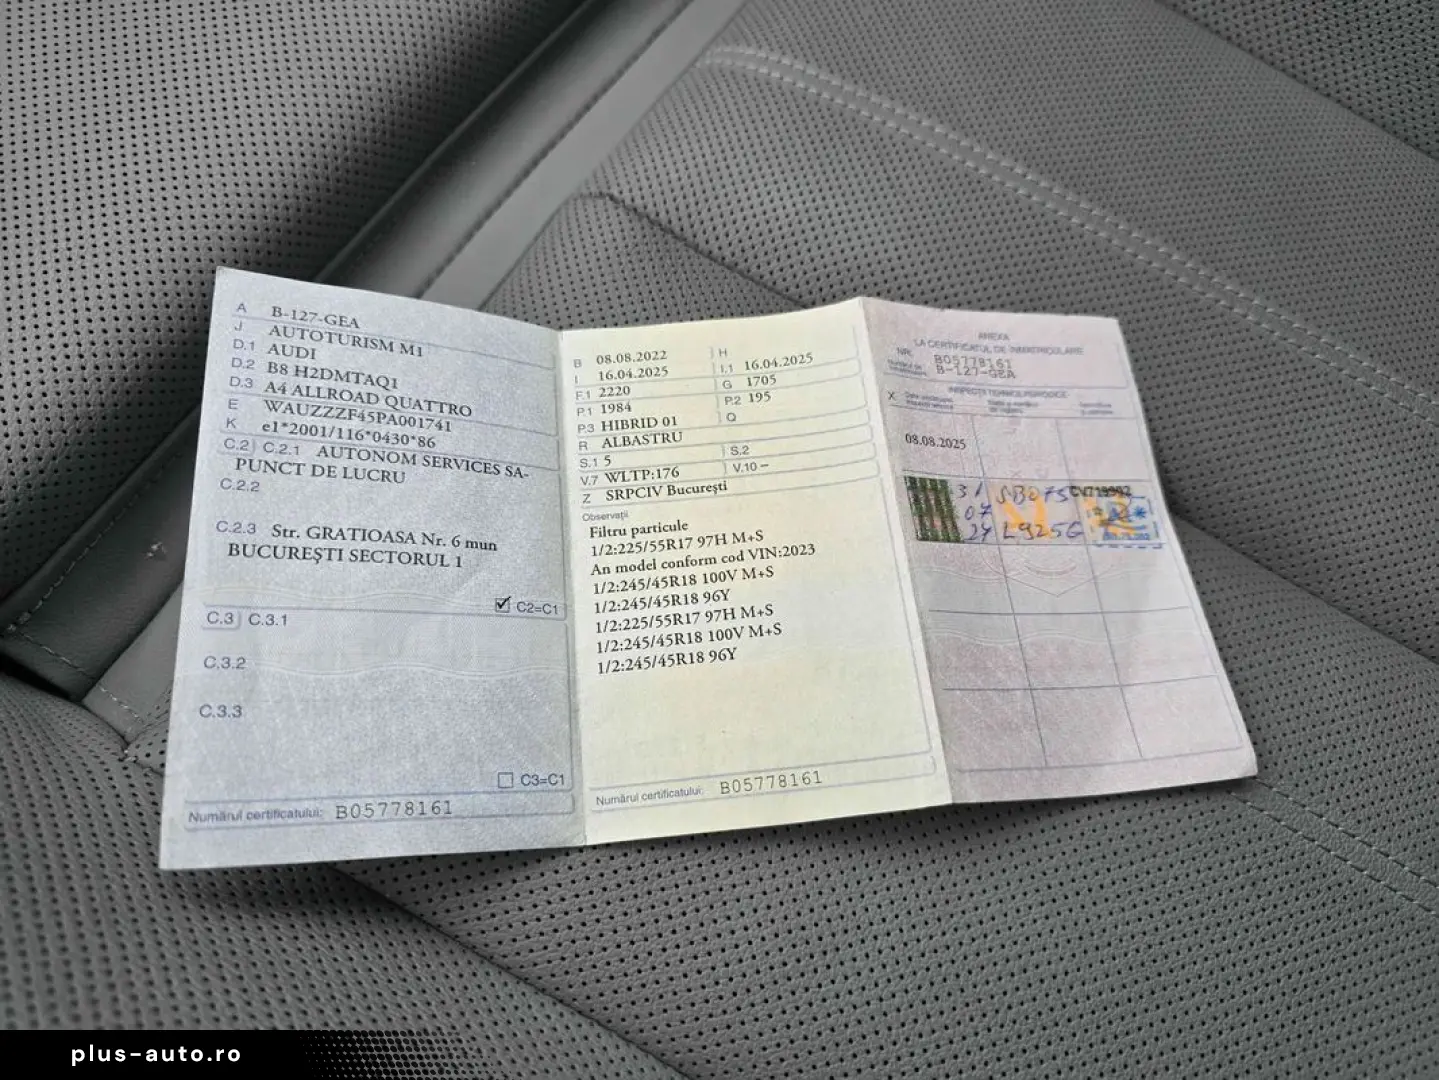 A B-127-GEA
J AUTOTURISM M1
D.1 AUDI
D.2 B8 H2DMTAQ1
D.3 A4 ALLROAD QUATTRO
E WAUZZZF45PA001741
K e1*2001/116*0430*86
C.2 C.2.1 AUTONOM SERVICES SA-
PUNCT DE LUCRU
C.2.2
C.2.3 Str. GRATIOASA Nr. 6 mun
BUCUREȘTI SECTORUL 1
C2=C1
C.3 C.3.1
C.3.2
C.3.3
C3=C1
Numărul certificatului: B05778161
B 08.08.2022 H
I 16.04.2025 I.1 16.04.2025
F.1 2220 G 1705
P.1 1984 P.2 195
P.3 HIBRID 01 Q
R ALBASTRU
S.1 5 S.2
V.7 WLTP:176 V.10 –
Z SRPCIV București
Observații
Filtru particule
1/2:225/55R17 97H M+S
An model conform cod VIN:2023
1/2:245/45R18 100V M+S
1/2:245/45R18 96Y
1/2:225/55R17 97H M+S
1/2:245/45R18 100V M+S
1/2:245/45R18 96Y
Numărul certificatului: B05778161
ANEXA
LA CERTIFICATUL DE ÎNMATRICULARE
NR. B05778161
B-127-GEA
INSPECȚII TEHNICE PERIODICE
X
08.08.2025
31
07
27
plus-auto.ro